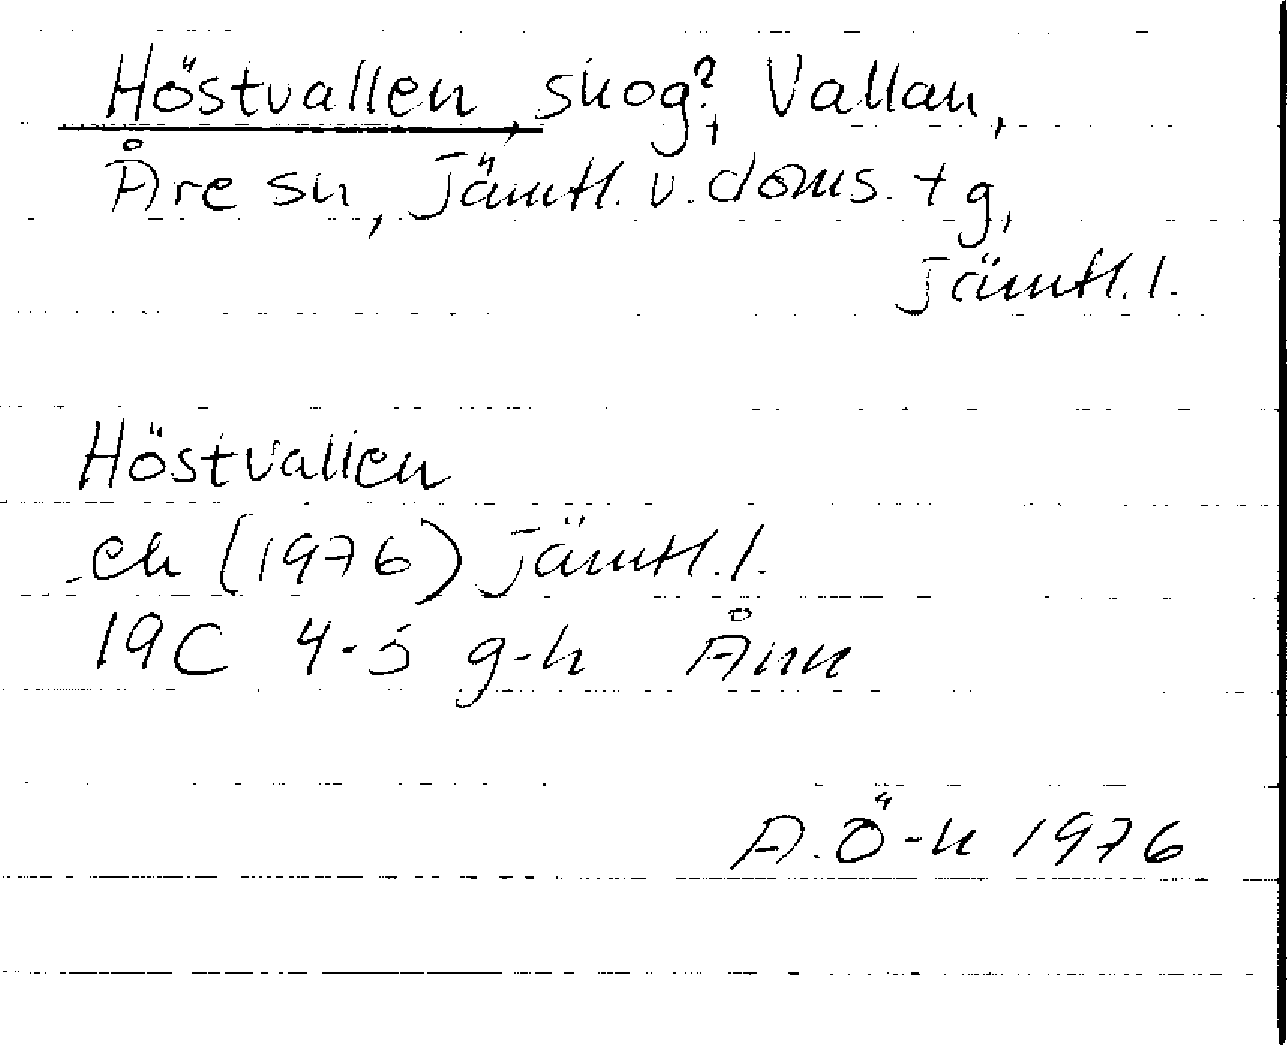 Höstvallen, skog?, Vallan,
Åre sn, Jämtl. v. doms. tg,
Jämtl. l.
Höstvallen
ek (1976) Jämtl. l.
19C 4-5 g-h Ånn
A. Ö-k 1976